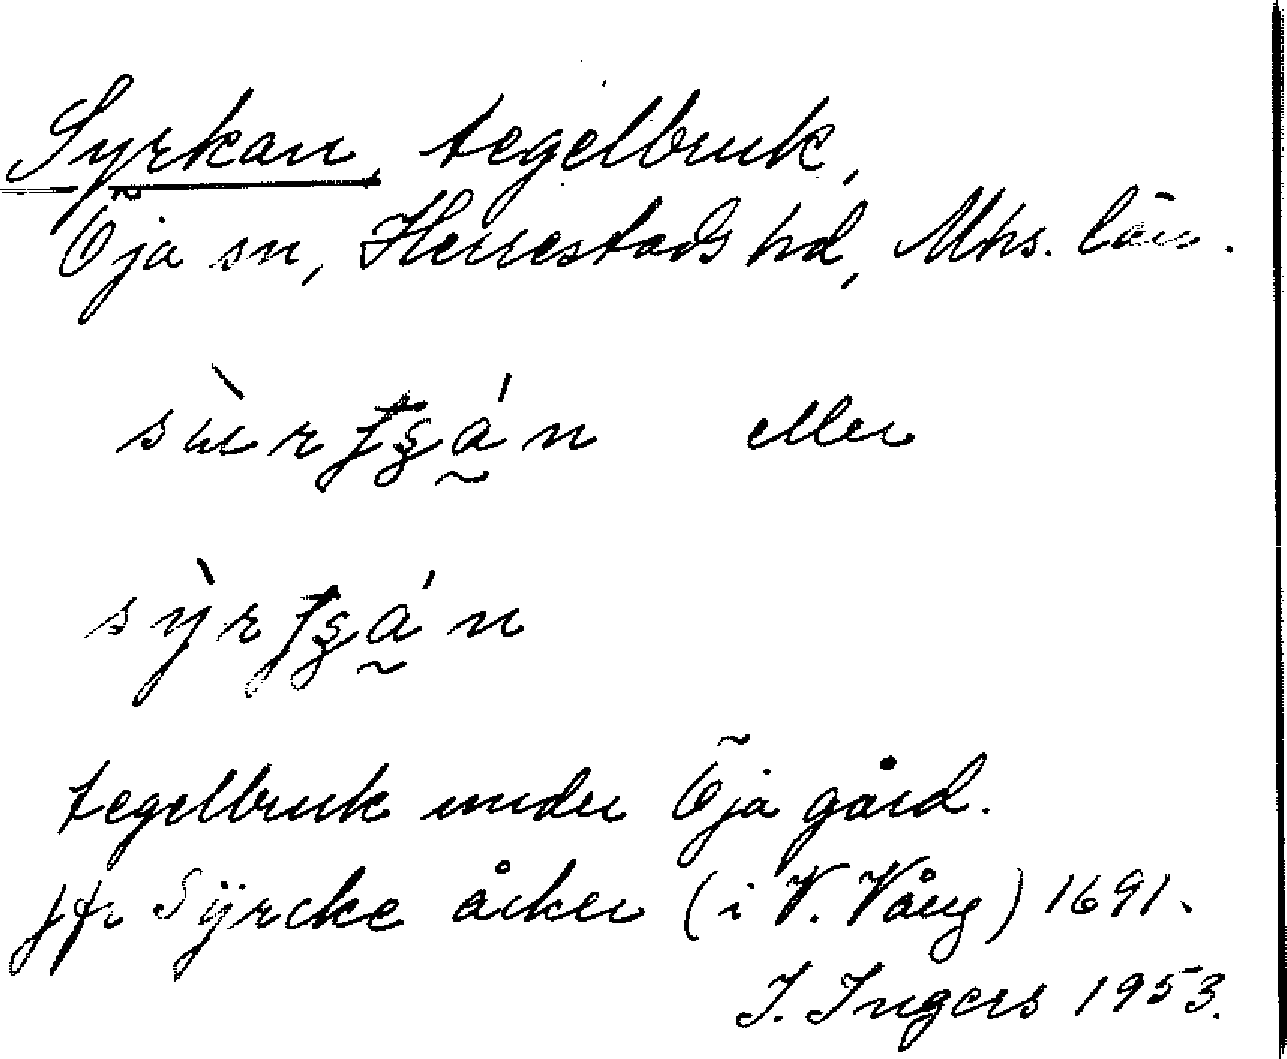 Syrkan, tegelbruk,
Öja sn, Herrestads hd, Mhs. län.
eller
tegelbruk under Öja gård.
jfr Sÿrcke åker (i V. Vång) 1691.
I. Ingers 1953.